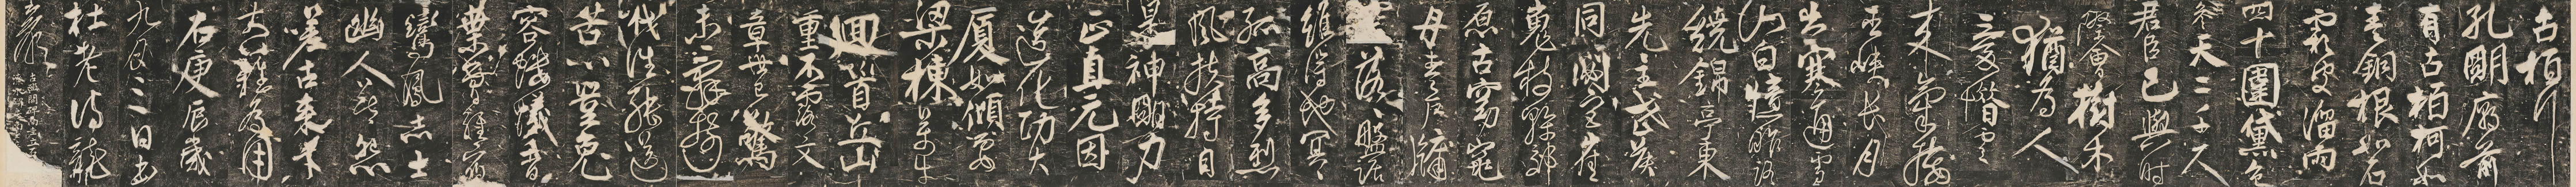 古柏行
孔明廟前
有古柏柯如
青銅根如石
霜皮溜雨
四十圍黛色
參天二千尺
君臣已與時
際會樹木
猶為人
愛惜雲
來氣接
巫峽長月
出寒通雪
山白憶昨路
繞錦亭東
先主武侯
同閟宮崔
嵬枝幹郊
原古窈窕
丹青戶牖
落落盤踞
雖得地冥冥
孤高多烈
風扶持自
是神明力
正直元因
造化功大
廈如傾要
梁棟萬牛
迴首丘山
重不露文
章世已驚
未辭剪
伐誰能送
苦心豈免
容螻蟻香
葉曾經宿
鸞鳳志士
幽人莫怨
嗟古來材
大難為用
右庚辰歲
九月三日書
杜老詩龍